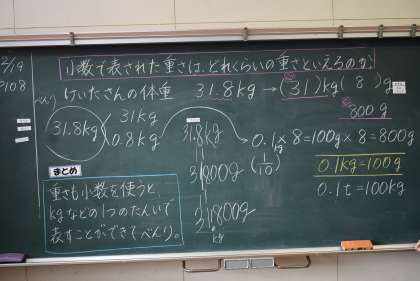 2/9
P108
小数で表された重さは、どれくらいの重さといえるのか
けいたさんの体重 31.8kg → (31)kg( 8 )g
800g
31.8kg
31kg
0.8kg
31.8kg
31800g
31800g
kg
0.1kg × 8 = 100g × 8 = 800g
(1/10)
0.1kg = 100g
0.1t = 100kg
まとめ
重さも小数を使うと、
kgなどの1つのたんいで
表すことができてべんり。